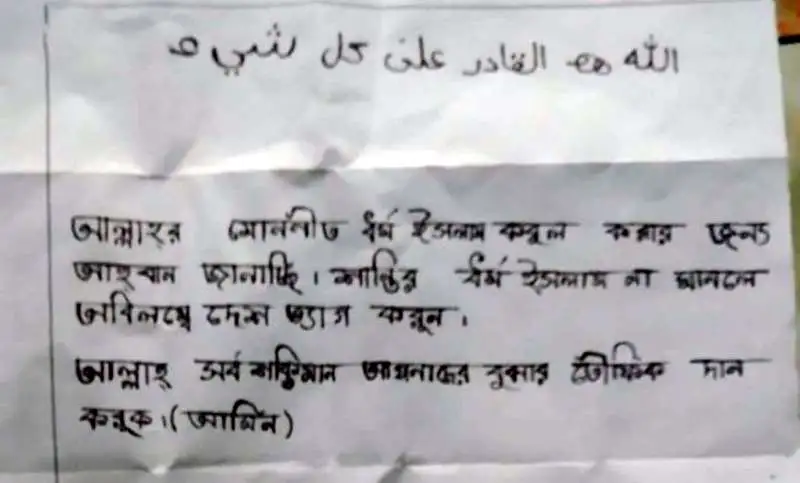 الله هو القادر على كل شيء
আল্লাহর মোননীত ধর্ম ইসলাম কবুল করার জন্য
আহ্বান জানাচ্ছি। শান্তির ধর্ম ইসলাম না মানলে
অবিলম্বে দেশ ত্যাগ করুন।
আল্লাহ্ সর্ব শক্তিমান আপনাদের বুঝার তৌফিক দান
করুক।(আমিন)